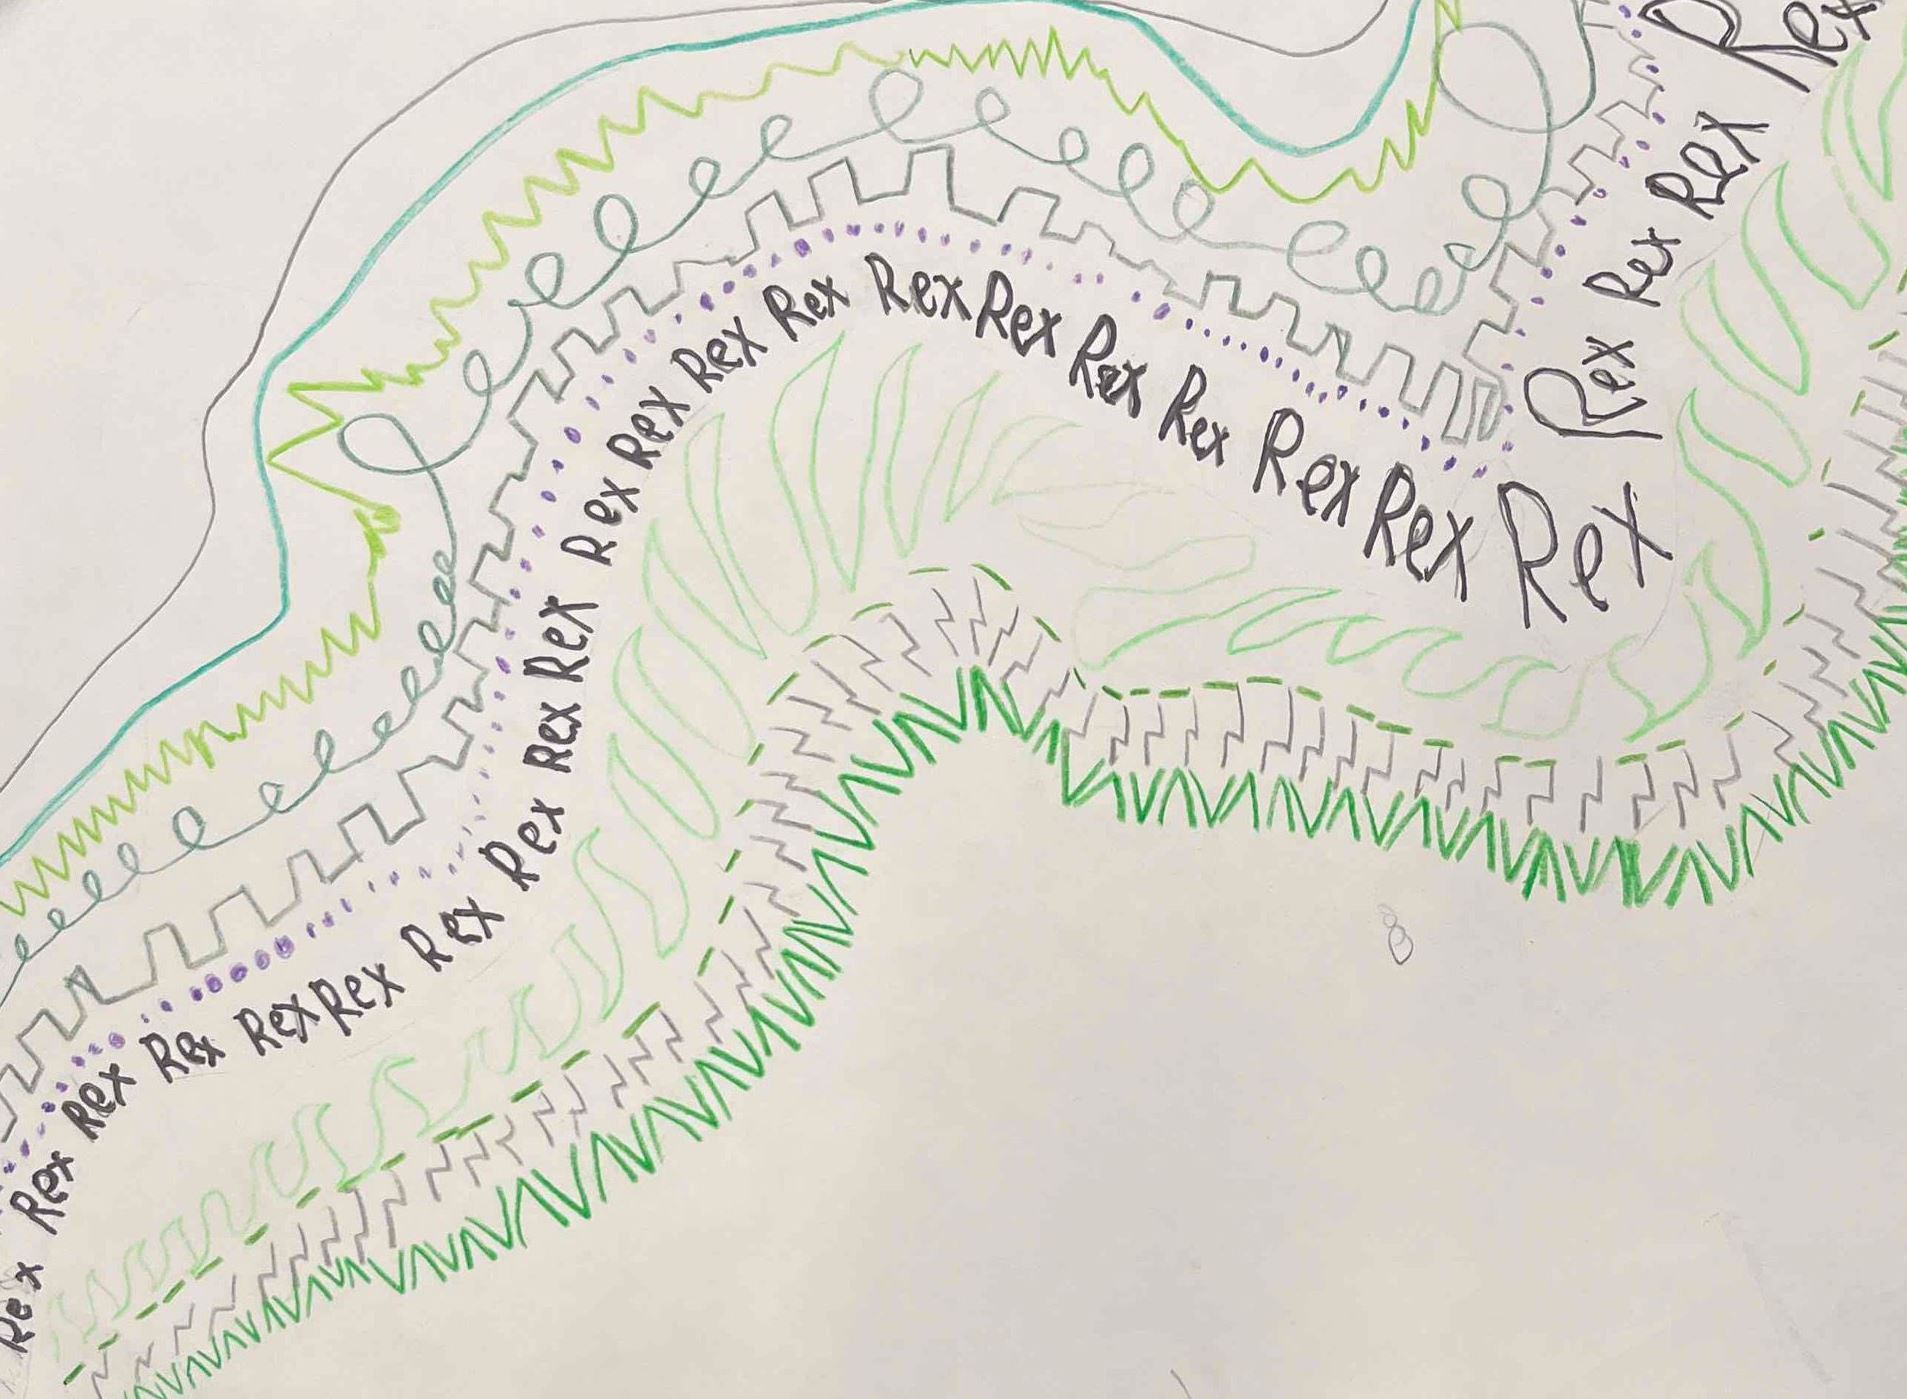 Rex Rex Rex Rex Rex Rex Rex Rex Rex Rex Rex Rex Rex Rex Rex Rex Rex Rex Rex Rex Rex
Rex Rex Rex Rex